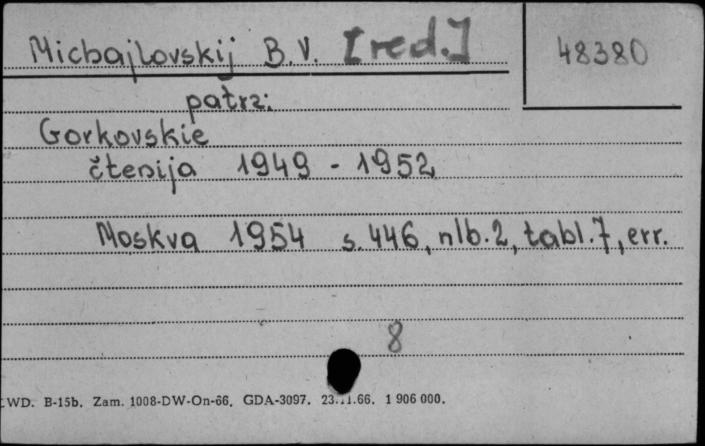 Michajlovskij B.V. [red.]
48380
patrz:
Gorkovskie
čtenija 1949 - 1952
Moskva 1954 s. 446, nlb. 2, tabl. 7, err.
8
WD. B-15b. Zam. 1008-DW-On-66. GDA-3097. 23.11.66. 1 906 000.